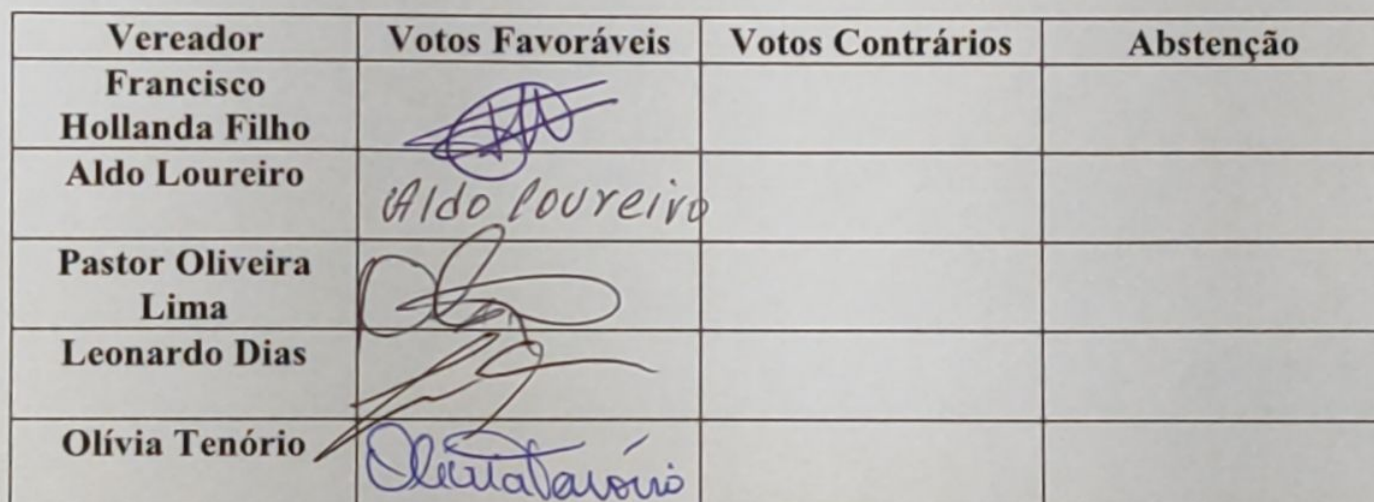 Vereador Votos Favoráveis Votos Contrários Abstenção
Francisco
Hollanda Filho
Aldo Loureiro
Aldo Loureiro
Pastor Oliveira
Lima
Leonardo Dias
Olívia Tenório
Olívia Tenório